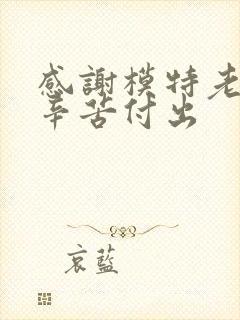 感謝模特老
辛苦付出
哀藍